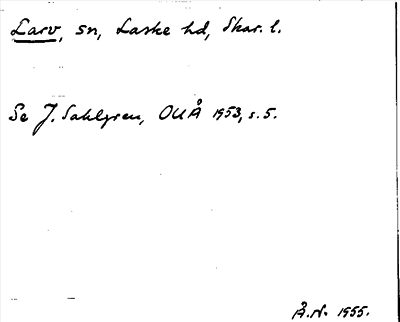 Larv, sn, Laske hd, Skar. l.
Se J. Sahlgren, OUÅ 1953, s. 5.
Å.N. 1955.